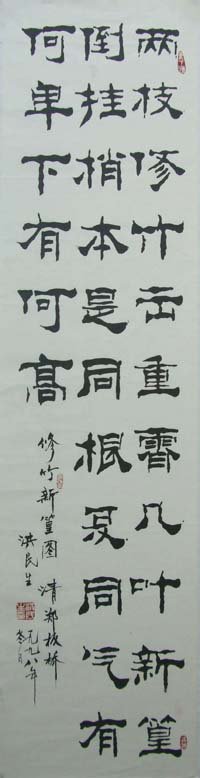 两枝修竹出重霄几叶新篁
倒挂梢本是同根复同气有
何卑下有何高
修竹新篁图 清郑板桥
洪民生 一九九八年
冬月